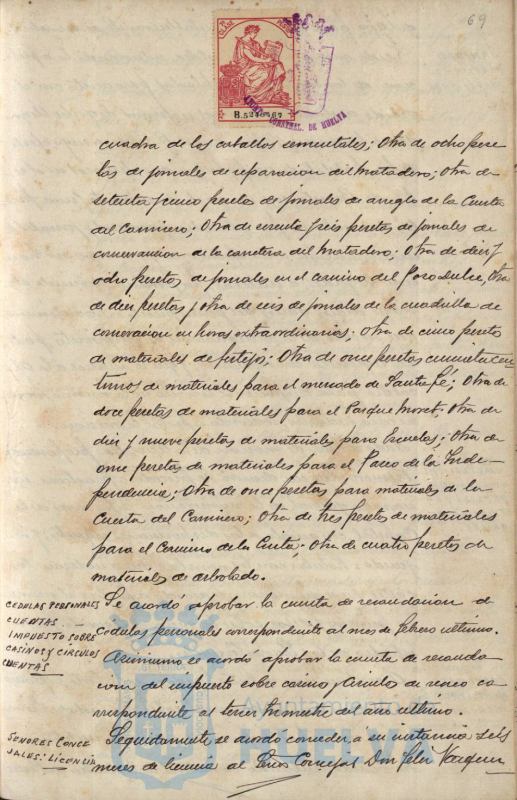 69
7ª CLASE
B.5210367
CONSTNAL. DE HUELVA
cuadra de los caballos sementales; Otra de ocho pese
tas de jornales de reparacion del Matadero; Otra de
setenta y cinco pesetas de jornales de arreglo de la Cuesta
del Carnicero; Otra de sesenta y seis pesetas de jornales de
conservacion de la carretera del Matadero; Otra de diez y
ocho pesetas de jornales en el camino del Pozo Dulce, Otra
de diez pesetas y otra de seis de jornales de la cuadrilla de
conservacion en horas extraordinarias; Otra de cinco pesetas
de materiales de festejos; Otra de once pesetas cincuenta cen
timos de materiales para el mercado de Santa Fé; Otra de
doce pesetas de materiales para el Parque Moret; Otra de
diez y nueve pesetas de materiales para Escuelas; Otra de
once pesetas de materiales para el Paseo de la Inde-
pendencia; Otra de once pesetas para materiales de la
Cuesta del Carnicero; Otra de tres pesetas de materiales
para el Camino de la Cinta. Otra de cuatro pesetas de
materiales de arbolado.
CEDULAS PERSONALES
CUENTAS
IMPUESTO SOBRE
CASINOS Y CIRCULOS
CUENTAS
Se acordó aprobar la cuenta de recaudacion de
Cedulas personales correspondiente al mes de Febrero ultimo.
Asimismo se acordó aprobar la cuenta de recauda
cion del impuesto sobre casinos y circulos de recreo co
rrespondiente al tercer trimestre del año ultimo.
SEÑORES CONCE
JALES: LICENCIA
Seguidamente se acordó conceder a su instancia seis
meses de licencia al Señor Concejal Don Felix Vazquez
HUELVA